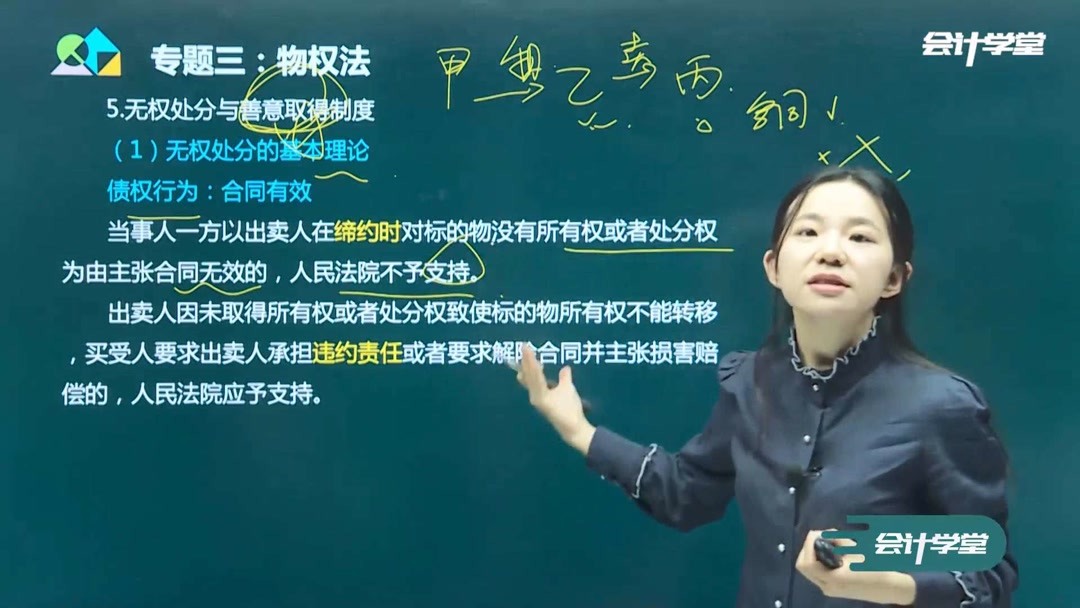 会计学堂
专题三：物权法
甲 租 乙 卖 丙
合同
5.无权处分与善意取得制度
（1）无权处分的基本理论
债权行为：合同有效
当事人一方以出卖人在缔约时对标的物没有所有权或者处分权
为由主张合同无效的，人民法院不予支持。
出卖人因未取得所有权或者处分权致使标的物所有权不能转移
，买受人要求出卖人承担违约责任或者要求解除合同并主张损害赔
偿的，人民法院应予支持。
会计学堂